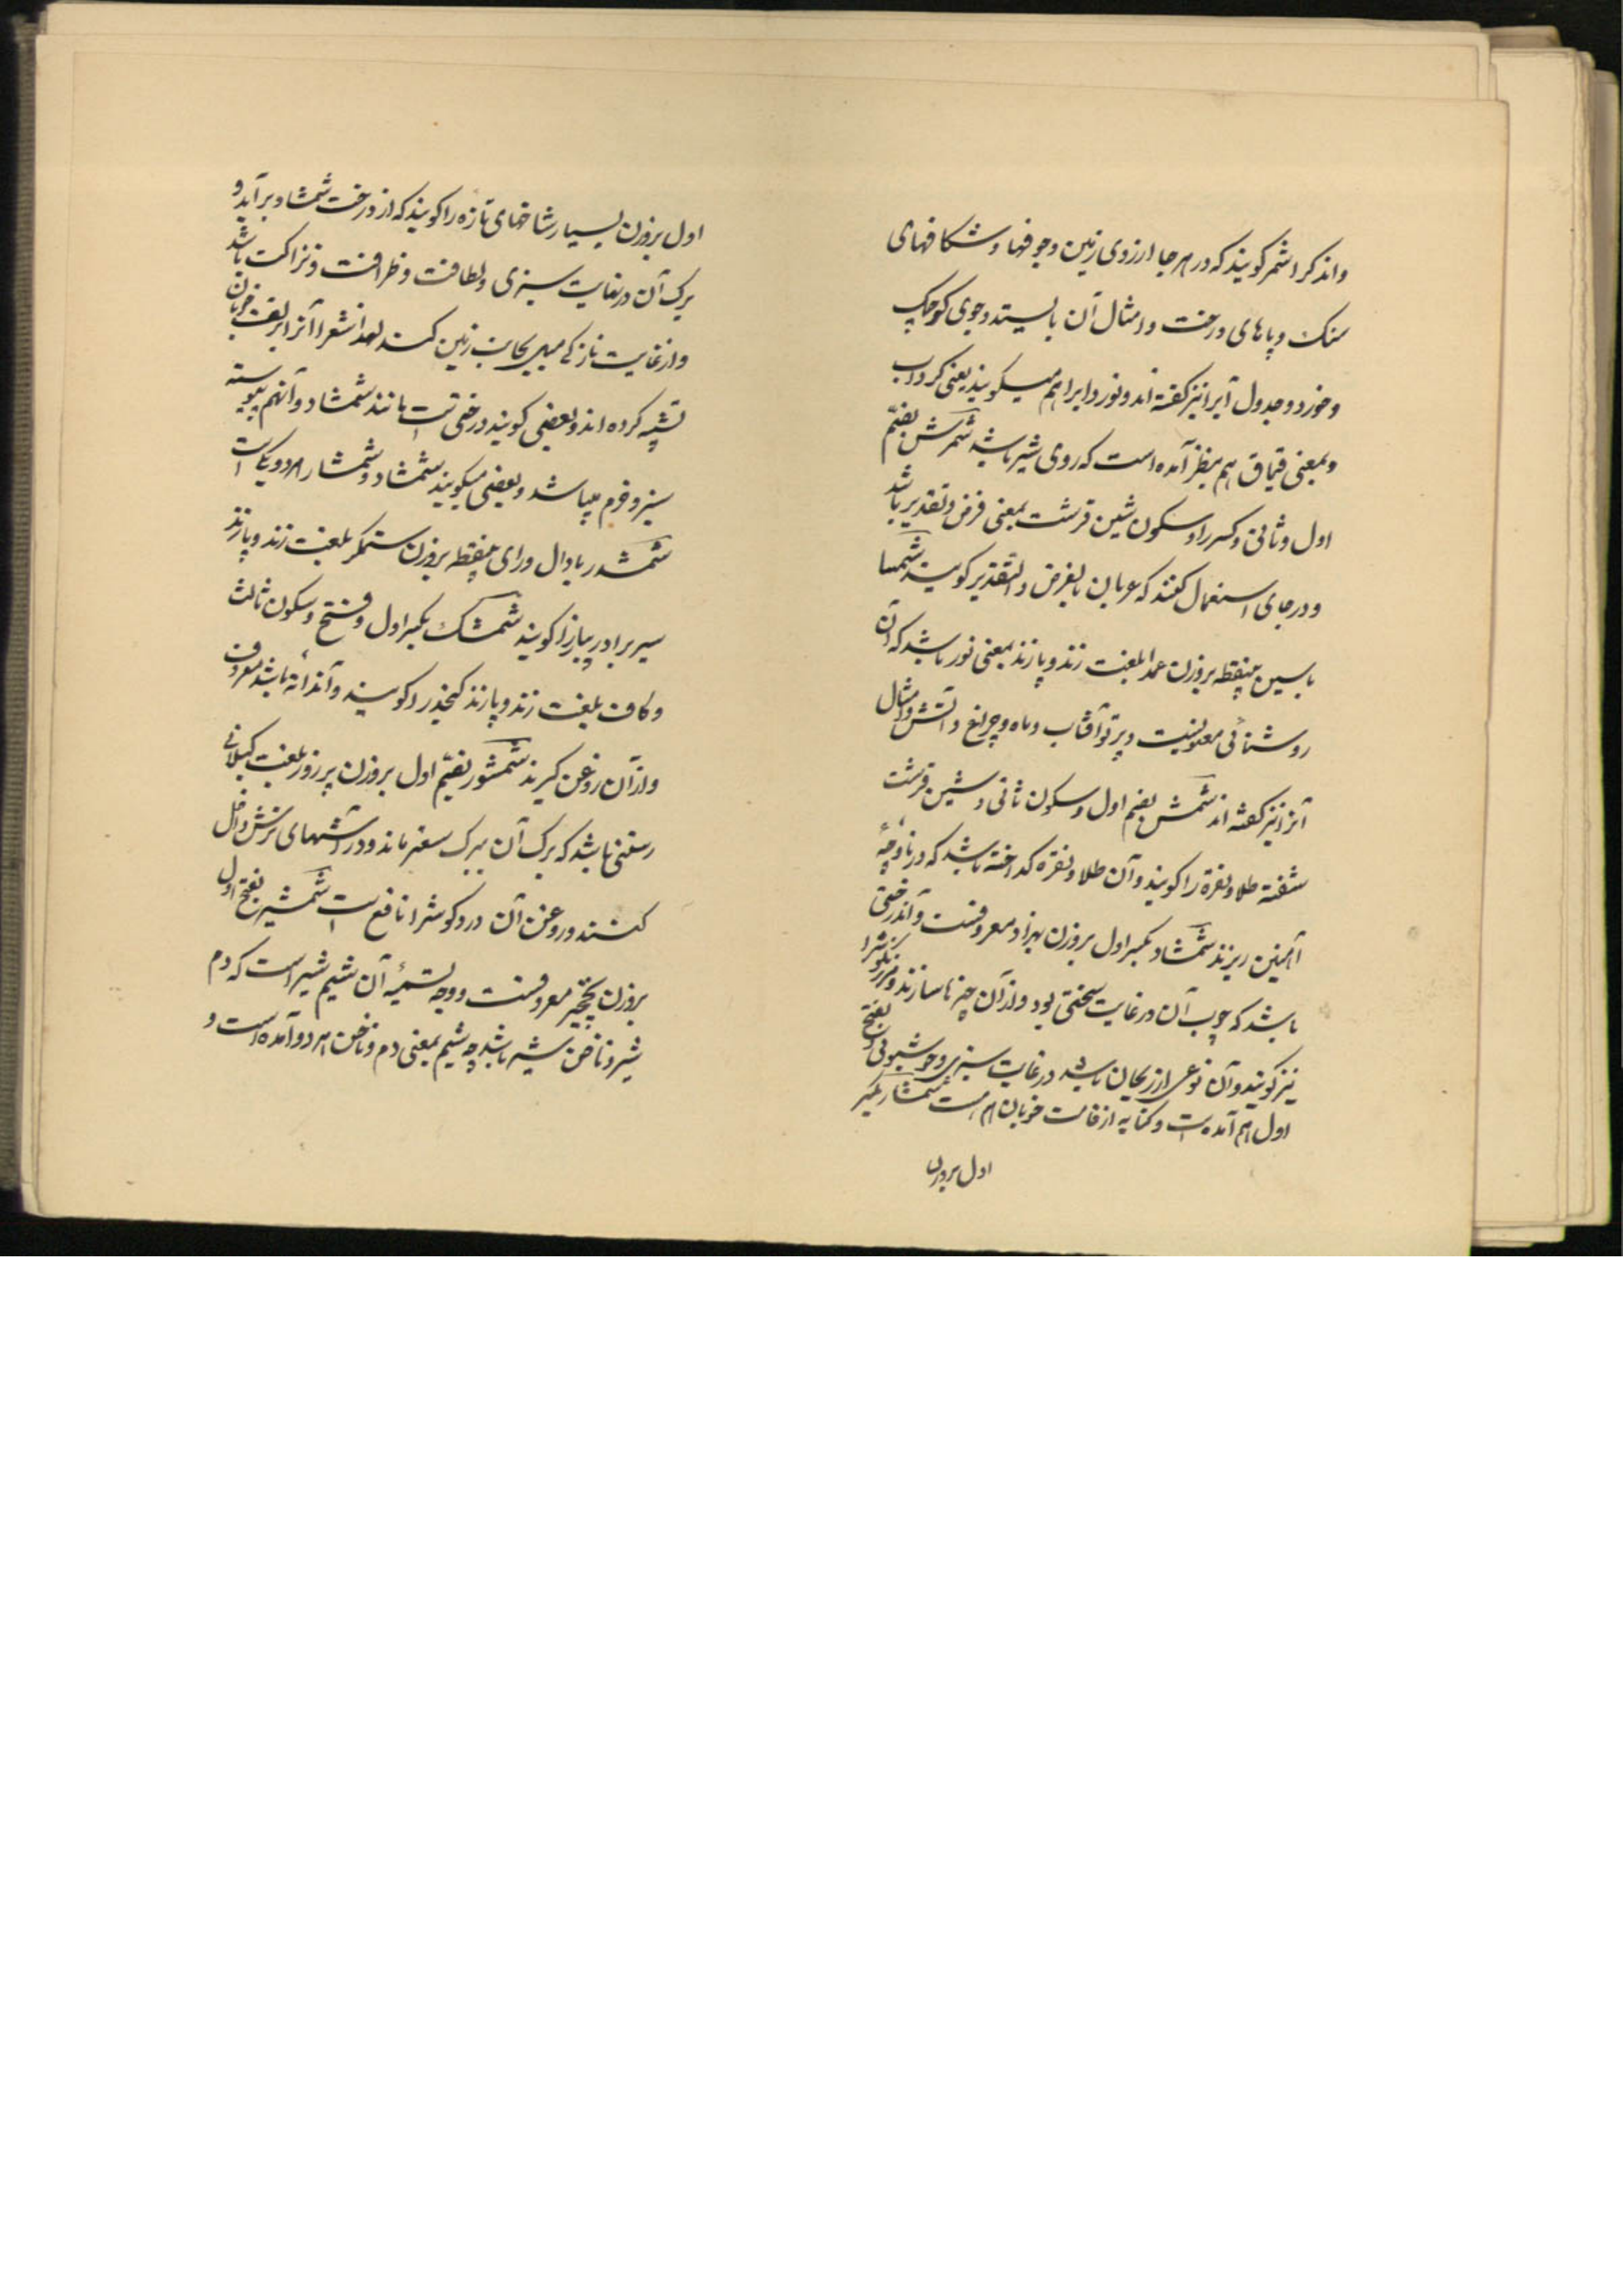 واندکرا شمر کویند که در هر جا از روی زمین وجوفها و شکافهای
سنک و پاهای درخت و امثال آن بایستد وجوی کوچک
و خورد و جدول آبرا نیز کفته اند و نورد ابرا هم میکویند یعنی کرداب
و بمعنی قیماق هم بنظر آمده است که روی شیر باشد شمرش بضم
اول و ثانی و کسر را و سکون شین قرشت بمعنی فرض و تقدیر باشد
و در جای استعمال کنند که عربان بالفرض و التقدیر کویند شمسا
باسین بینقطه بروزن عمدا بلغت زند و پازند بمعنی نور باشد که آن
روشنائی معنویست و پرتو آفتاب و ماه و چراغ و آتش و امثال
آنرا نیز کفته اند شمش بضم اول و سکون ثانی و شین قرشت
شفته طلا و نقره را کویند و آن طلا و نقره کداخته باشد که در ناوچهٔ
آهنین ریزند شمشاد بکسر اول بروزن بهزاد معروفست و آندرختی
باشد که چوب آن در غایت سختی بود و از آن چیزها سازند و مرزنکوش را
نیز کویند و آن نوعی از ریحان باشد در غایت سبزی و خوشبوئی و بفتح
اول هم آمده است و کنایه از قامت خوبان هم هست شمشار بکسر
اول بروزن
اول بروزن بسیار شاخهای تازه را کویند که از درخت شمشاد برآید و
برک آن در نهایت سبزی و لطافت و ظرافت و نزاکت باشد
و از غایت نازکی میل بجانب زمین کند لهذا شعرا آنرا بزلف خوبان
تشبیه کرده اند و بعضی کویند درختی است مانند شمشاد و آنهم پیوسته
سبز و خرم میباشد و بعضی میکویند شمشاد و شمشار هر دو یکی است
شمشدر با دال و رای بینقطه بروزن ستمکر بلغت زند و پازند
سیر برادر پیاز را کویند شمشک بکسر اول و فتح و سکون ثالث
و کاف بلغت زند و پازند کنجد را کویند و آندانه باشد معروف
و از آن روغن کیرند شمشور بضم اول بروزن پرزور بلغت کیلانی
رستنی باشد که برک آن ببرک سعتر ماند و در آشهای ترش داخل
کنند و روغن آن درد کوش را نافع است شمشیر بفتح اول
بروزن نخچیر معروفست و وجه تسمیهٔ آن شیم شیر است که دم
شیر و ناخن شیر باشد چه شیم بمعنی دم و ناخن هر دو آمده است و